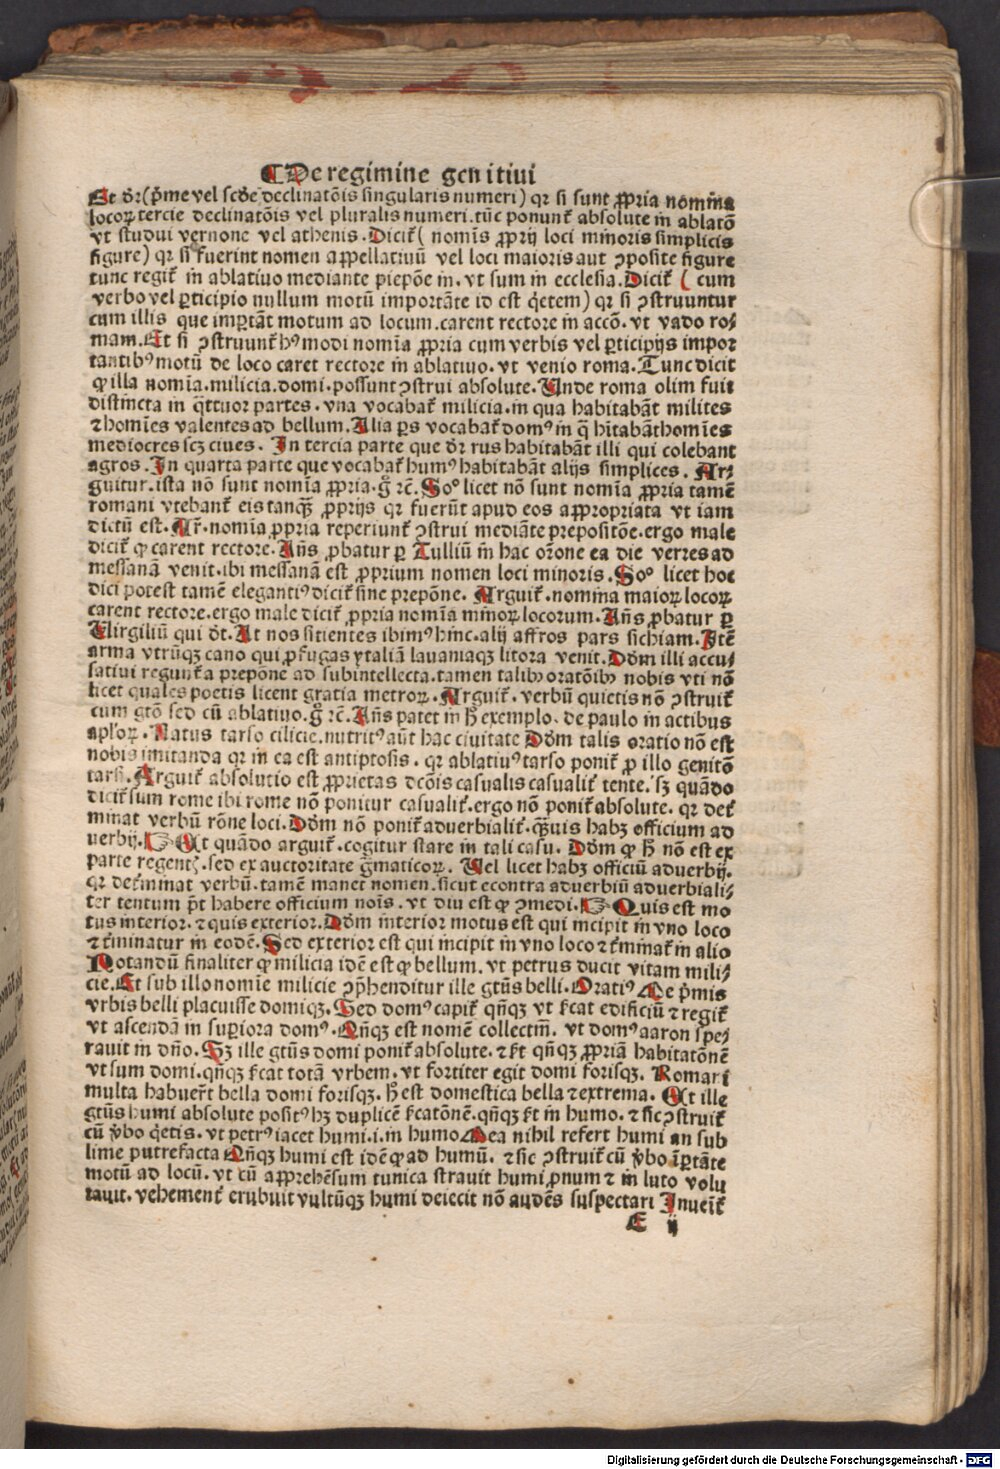 ¶ De regimine genitiui
Et dr̄ (p̄me vel scd̄e declinatōis singularis numeri) qr si sunt ꝓpria nomīa
locoꝝ tercie declinatōis vel pluralis numeri. tūc ponunt᷑ absolute in ablatō
vt studui vernone vel athenis. Dicit᷑ ( nomīs ꝓprij loci minoris simplicis
figure) qr si fuerint nomen appellatiuū vel loci maioris aut ꝯposite figure
tunc regit᷑ in ablatiuo mediante p̄epōe in. vt sum in ecclesia. Dicit᷑ ( cum
verbo vel ꝑticipio nullum motū importāte id est q̇etem) qr si ꝯstruuntur
cum illis que imꝑtāt motum ad locum. carent rectore in accō. vt vado ro⸗
mam. Et si ꝯstruunt᷑ hꝰmodi nomīa ꝓpria cum verbis vel ꝑticipijs impor
tantibꝰ motū de loco caret rectore in ablatiuo. vt venio roma. Tunc dicit
ꝙ illa nomīa. milicia. domi. possunt ꝯstrui absolute. Unde roma olim fuit
distincta in q̄ttuor partes. vna vocabat᷑ milicia. in qua habitabāt milites
⁊ homīes valentes ad bellum. Alia ꝑs vocabat᷑ domꝰ in q̄ hītabāt homīes
mediocres scꝫ ciues. In tercia parte que dr̄ rus habitabāt illi qui colebant
agros. In quarta parte que vocabat᷑ humꝰ habitabāt alijs simplices. Ar⸗
guitur. ista nō sunt nomīa ꝓpria. g̊ rē. Soᵒ licet nō sunt nomīa ꝓpria tamē
romani vtebant᷑ eis tanqͣꝫ ꝓprijs qr fuerūt apud eos appropriata vt iam
dictū est. Ar̄. nomīa ꝓpria reperiunt᷑ ꝯstrui mediāte prepositōe. ergo male
dicit᷑ ꝙ carent rectore. Añs ꝓbatur ꝑ Tulliū in hac orōne ea die verres ad
messanā venit. ibi messanā est ꝓprium nomen loci minoris. Soᵒ licet hoc
dici potest tamē elegantiꝰ dicit᷑ sine prepōne. Arguit᷑. nomina maioꝝ locoꝝ
carent rectore. ergo male dicit᷑ ꝓpria nomīa minoꝝ locorum. Añs ꝓbatur ꝑ
Uirgiliū qui dt̄. At nos sitientes ibimꝰ hinc. alij affros pars sichiam. Itē
arma virūqꝫ cano qui ꝓfugas ytaliā lauaniaqꝫ litora venit. Dōm illi accu⸗
satiui regunt᷑ a prepōne ad subintellecta. tamen talibꝰ oratōibꝰ nobis vti nō
licet quales poetis licent gratia metroꝝ. Arguit᷑. verbū quietis nō ꝯstruit᷑
cum gtō sed cū ablatiuo. g̊ rē. Añs patet in h̄ exemplo. de paulo in actibus
aplōꝝ. Natus tarso cilicie. nutritꝰ aūt hac ciuitate Dōm talis oratio nō est
nobis imitanda qr in ea est antiptosis. qr ablatiuꝰ tarso ponit᷑ ꝓ illo genitō
tarsi. Arguit᷑ absolutio est ꝓprietas dcōis casualis casualit᷑ tente. sꝫ quādo
dicit᷑ sum rome ibi rome nō ponitur casualit᷑. ergo nō ponit᷑ absolute. qr det᷑
minat verbū rōne loci. Dōm nō ponit᷑ aduerbialit᷑. qͣꝫuis habꝫ officium ad
uerbij. ☞ At quādo arguit᷑. cogitur stare in tali casu. Dōm ꝙ h̄ nō est ex
parte regentꝭ. sed ex auctoritate g̅maticoꝝ. Uel licet habꝫ officiū aduerbij.
qr det᷑minat verbū. tamē manet nomen. sicut econtra aduerbiū aduerbiali⸗
ter tentum p̄t habere officium noīs. vt diu est ꝙ ꝯmedi. ☞ Quis est mo
tus interior. ⁊ quis exterior. Dōm interior motus est qui incipit in vno loco
⁊ t᷑minatur in eodē. Sed exterior est qui incipit in vno loco ⁊ t᷑minat᷑ in alio
Notandū finaliter ꝙ milicia idē est ꝙ bellum. vt petrus ducit vitam mili⸗
cie. Et sub illo nomīe milicie ꝯp̄henditur ille gtūs belli. Oratiꝰ Me p̄mis
vrbis belli placuisse domiqꝫ. Sed domꝰ capit᷑ qn̄qꝫ vt s̄cat edificiū ⁊ regit᷑
vt ascendā in suꝑiora domꝰ. Qn̄qꝫ est nomē collectīm. vt domꝰ aaron spe⸗
rauit in dn̄o. Sꝫ ille gtūs domi ponit᷑ absolute. ⁊ s̄t qn̄qꝫ ꝓpriā habitatōnē
vt sum domi. qn̄qꝫ s̄cat totā vrbem. vt fortiter egit domi forisqꝫ. Romani
multa habuer̄t bella domi forisqꝫ. h̄ est domestica bella ⁊ extrema. At ille
gtūs humi absolute positꝰ hꝫ duplicē s̄catōnē. qn̄qꝫ s̄t in humo. ⁊ sic ꝯstruit᷑
cū v̄bo q̇etis. vt petrꝰ iacet humi .i. in humo Mea nihil refert humi an sub
lime putrefacta Qn̄qꝫ humi est idē ꝙ ad humū. ⁊ sic ꝯstruit᷑ cū v̄bo īꝑtāte
motū ad locū. vt cū apprehēsum tunica strauit humi pronum ⁊ in luto volu
tauit. vehement᷑ erubuit vultūqꝫ humi deiecit nō audēs suspectari Inueīt᷑
E ij
Digitalisierung gefördert durch die Deutsche Forschungsgemeinschaft - DFG